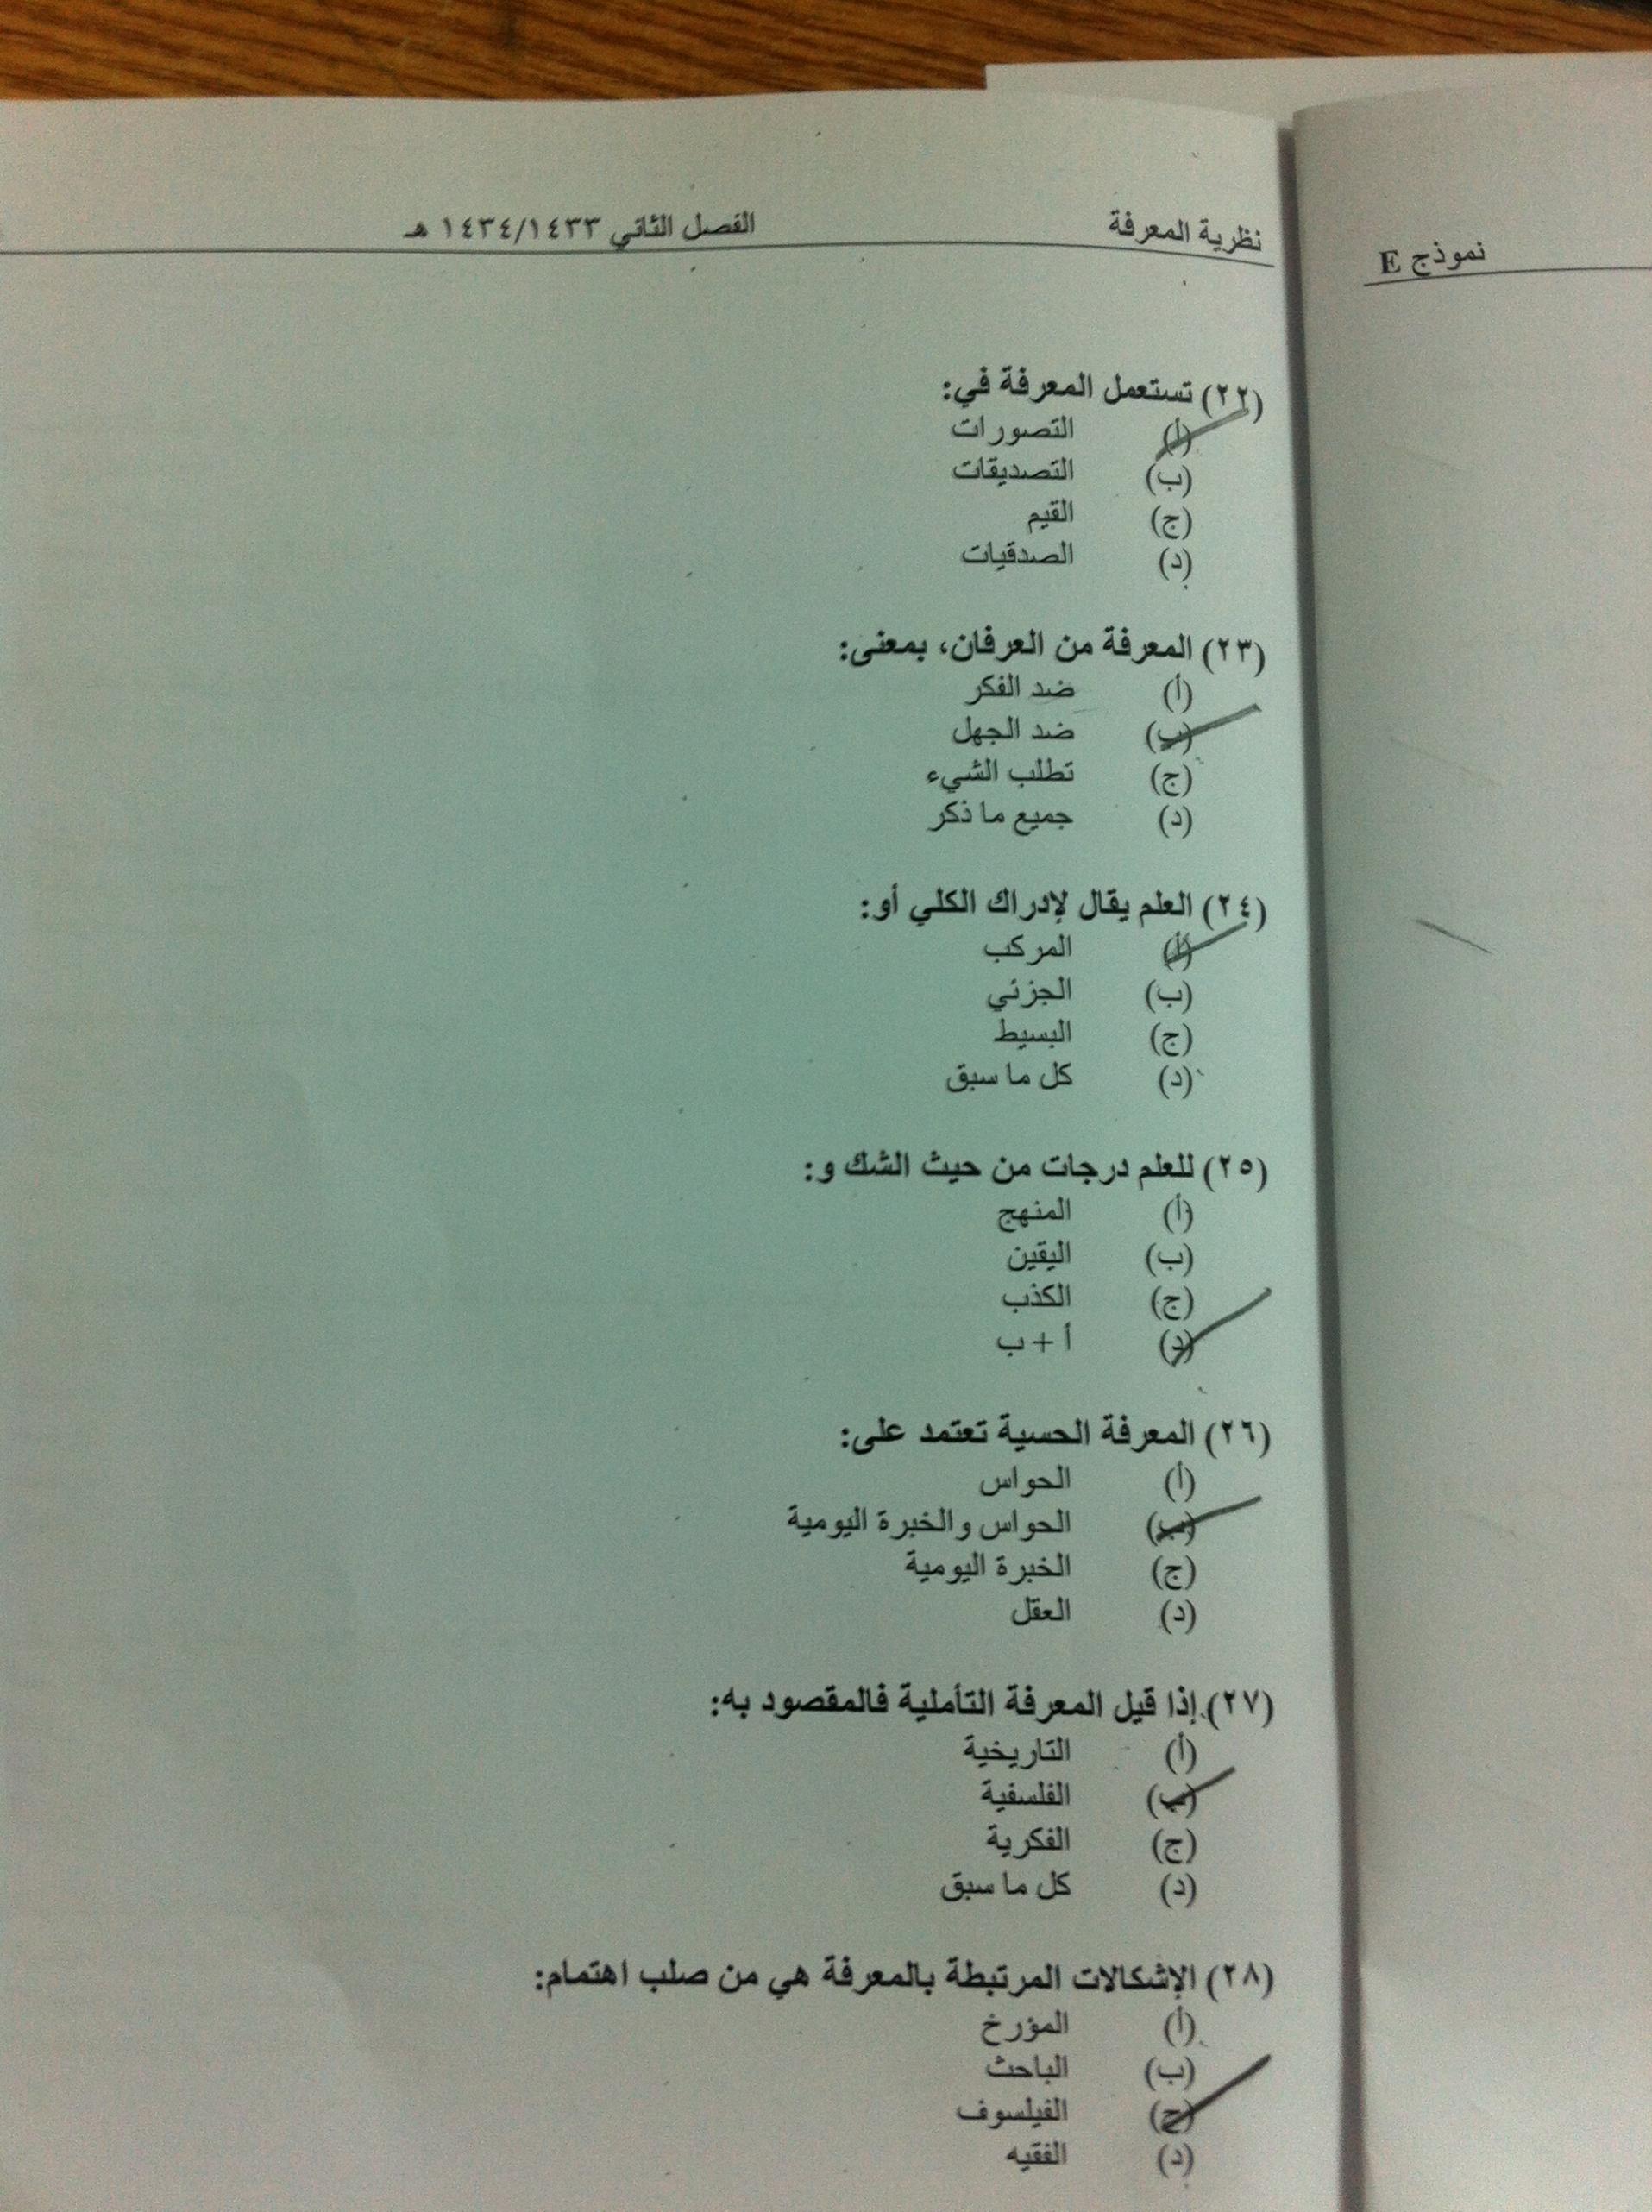 نموذج E
نظرية المعرفة الفصل الثاني ١٤٣٤/١٤٣٣ هـ
(٢٢) تستعمل المعرفة في:
(أ) التصورات
(ب) التصديقات
(ج) القيم
(د) الصدقيات
(٢٣) المعرفة من العرفان، بمعنى:
(أ) ضد الفكر
(ب) ضد الجهل
(ج) تطلب الشيء
(د) جميع ما ذكر
(٢٤) العلم يقال لإدراك الكلي أو:
(أ) المركب
(ب) الجزئي
(ج) البسيط
(د) كل ما سبق
(٢٥) للعلم درجات من حيث الشك و:
(أ) المنهج
(ب) اليقين
(ج) الكذب
(د) أ + ب
(٢٦) المعرفة الحسية تعتمد على:
(أ) الحواس
(ب) الحواس والخبرة اليومية
(ج) الخبرة اليومية
(د) العقل
(٢٧) إذا قيل المعرفة التأملية فالمقصود به:
(أ) التاريخية
(ب) الفلسفية
(ج) الفكرية
(د) كل ما سبق
(٢٨) الإشكالات المرتبطة بالمعرفة هي من صلب اهتمام:
(أ) المؤرخ
(ب) الباحث
(ج) الفيلسوف
(د) الفقيه